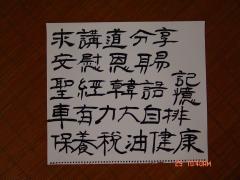 求講道分享
安慰恩賜
聖經韓語記憶
車有力大自排
保養稅油健康
10:43AM